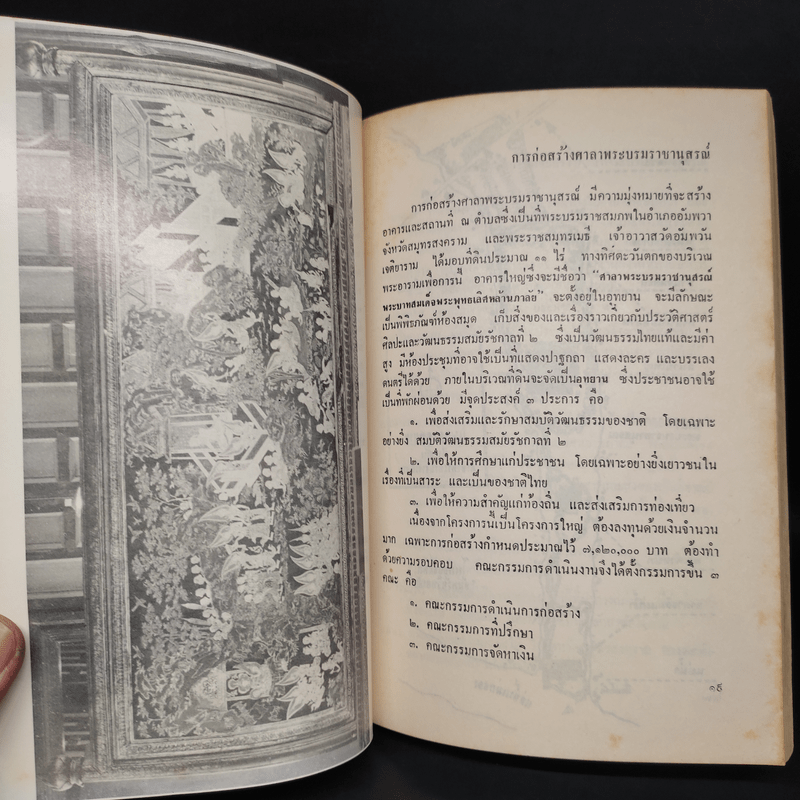 การก่อสร้างศาลาพระบรมราชานุสรณ์
การก่อสร้างศาลาพระบรมราชานุสรณ์ มีความมุ่งหมายที่จะสร้าง
อาคารและสถานที่ ณ ตำบลซึ่งเป็นที่พระบรมราชสมภพในอำเภออัมพวา
จังหวัดสมุทรสงคราม และพระราชสมุทรเมธี เจ้าอาวาสวัดอัมพวัน
เจติยาราม ได้มอบที่ดินประมาณ ๑๑ ไร่ ทางทิศตะวันตกของบริเวณ
พระอารามเพื่อการนี้ อาคารใหญ่ซึ่งจะมีชื่อว่า “ศาลาพระบรมราชานุสรณ์
พระบาทสมเด็จพระพุทธเลิศหล้านภาลัย” จะตั้งอยู่ในอุทยาน จะมีลักษณะ
เป็นพิพิธภัณฑ์ห้องสมุด เก็บสิ่งของและเรื่องราวเกี่ยวกับประวัติศาสตร์
ศิลปะและวัฒนธรรมสมัยรัชกาลที่ ๒ ซึ่งเป็นวัฒนธรรมไทยแท้และมีค่า
สูง มีห้องประชุมที่อาจใช้เป็นที่แสดงปาฐกถา แสดงละคร และบรรเลง
ดนตรีได้ด้วย ภายในบริเวณที่ดินจะจัดเป็นอุทยาน ซึ่งประชาชนอาจใช้
เป็นที่พักผ่อนด้วย มีจุดประสงค์ ๓ ประการ คือ
๑. เพื่อส่งเสริมและรักษาสมบัติวัฒนธรรมของชาติ โดยเฉพาะ
อย่างยิ่ง สมบัติวัฒนธรรมสมัยรัชกาลที่ ๒
๒. เพื่อให้การศึกษาแก่ประชาชน โดยเฉพาะอย่างยิ่งเยาวชนใน
เรื่องที่เป็นสาระ และเป็นของชาติไทย
๓. เพื่อให้ความสำคัญแก่ท้องถิ่น และส่งเสริมการท่องเที่ยว
เนื่องจากโครงการนี้เป็นโครงการใหญ่ ต้องลงทุนด้วยเงินจำนวน
มาก เฉพาะการก่อสร้างกำหนดประมาณไว้ ๗,๑๒๐,๐๐๐ บาท ต้องทำ
ด้วยความรอบคอบ คณะกรรมการดำเนินงานจึงได้ตั้งกรรมการขึ้น ๓
คณะ คือ
๑. คณะกรรมการดำเนินการก่อสร้าง
๒. คณะกรรมการที่ปรึกษา
๓. คณะกรรมการจัดหาเงิน